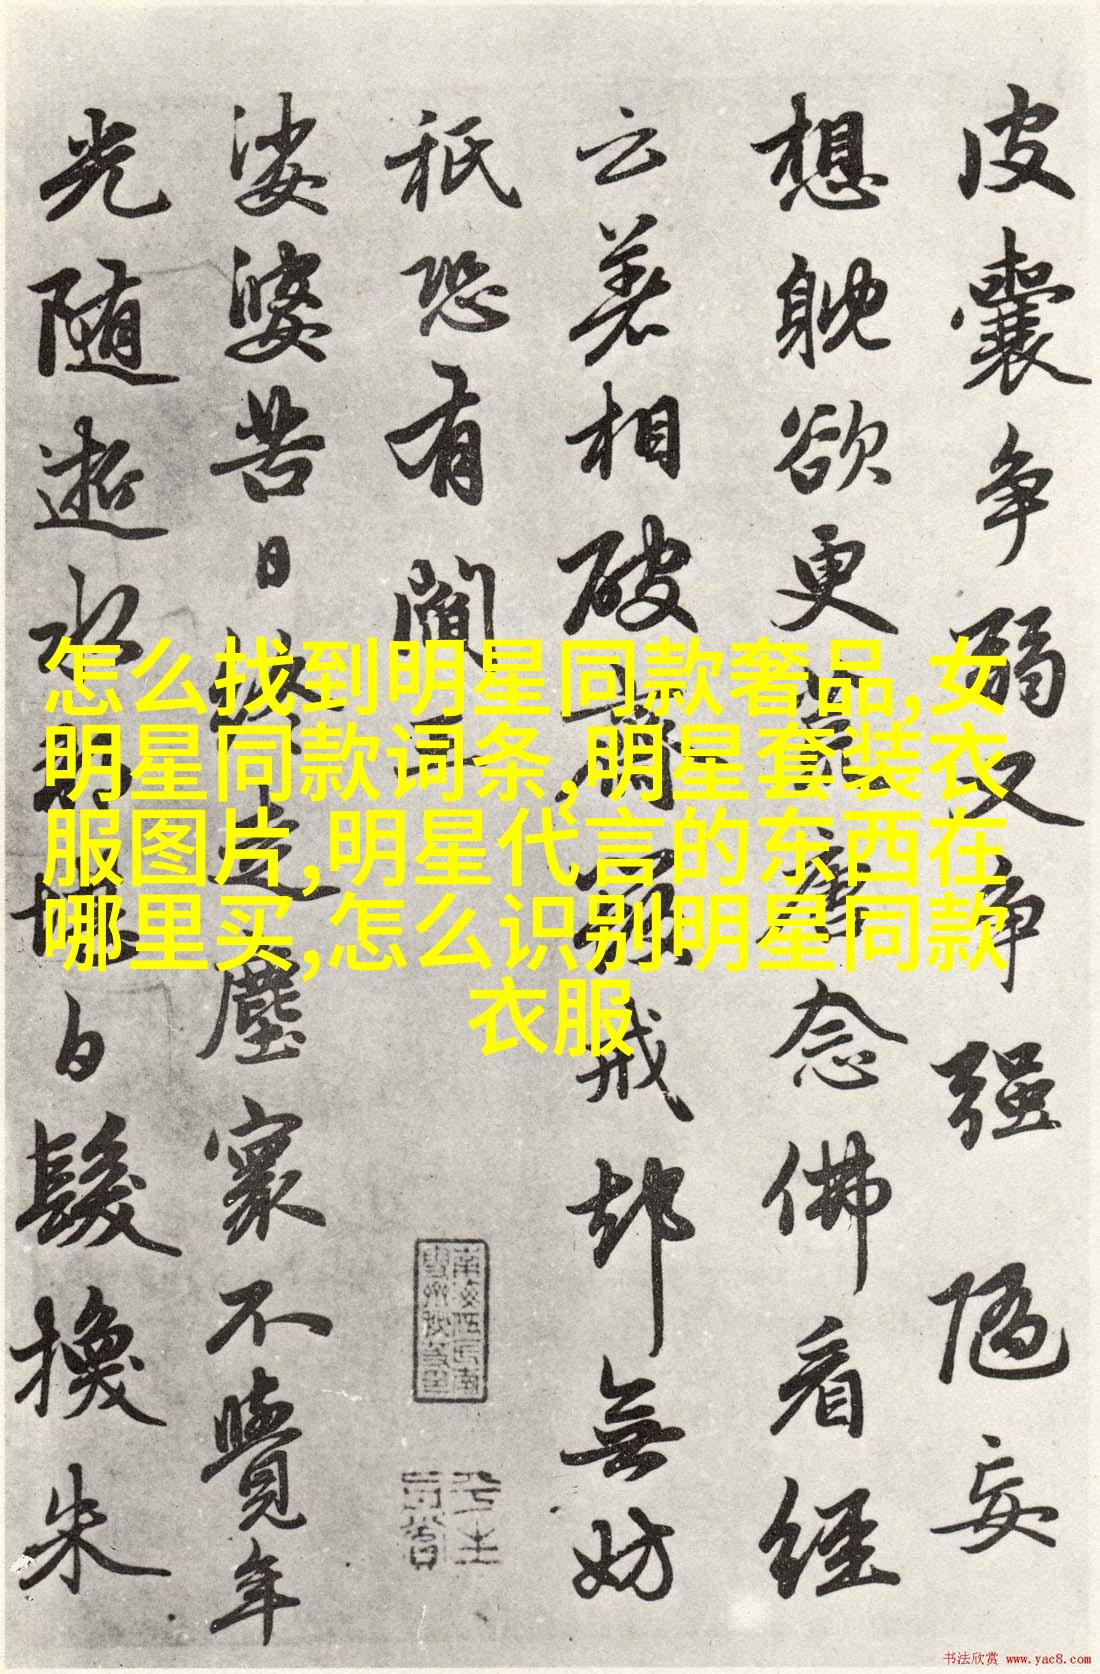 怎么找到明星同款奢品,女
明星同款词条,明星套装衣
服图片,明星代言的东西在
哪里买,怎么识别明星同款
衣服
皮囊争弱又争强妄
想躭欲更念佛看經
云相破戒却無妨
祇恐有
娑婆苦日塵寰不覺年
光随逝水白髮換朱
书法欣赏 www.yac8.com